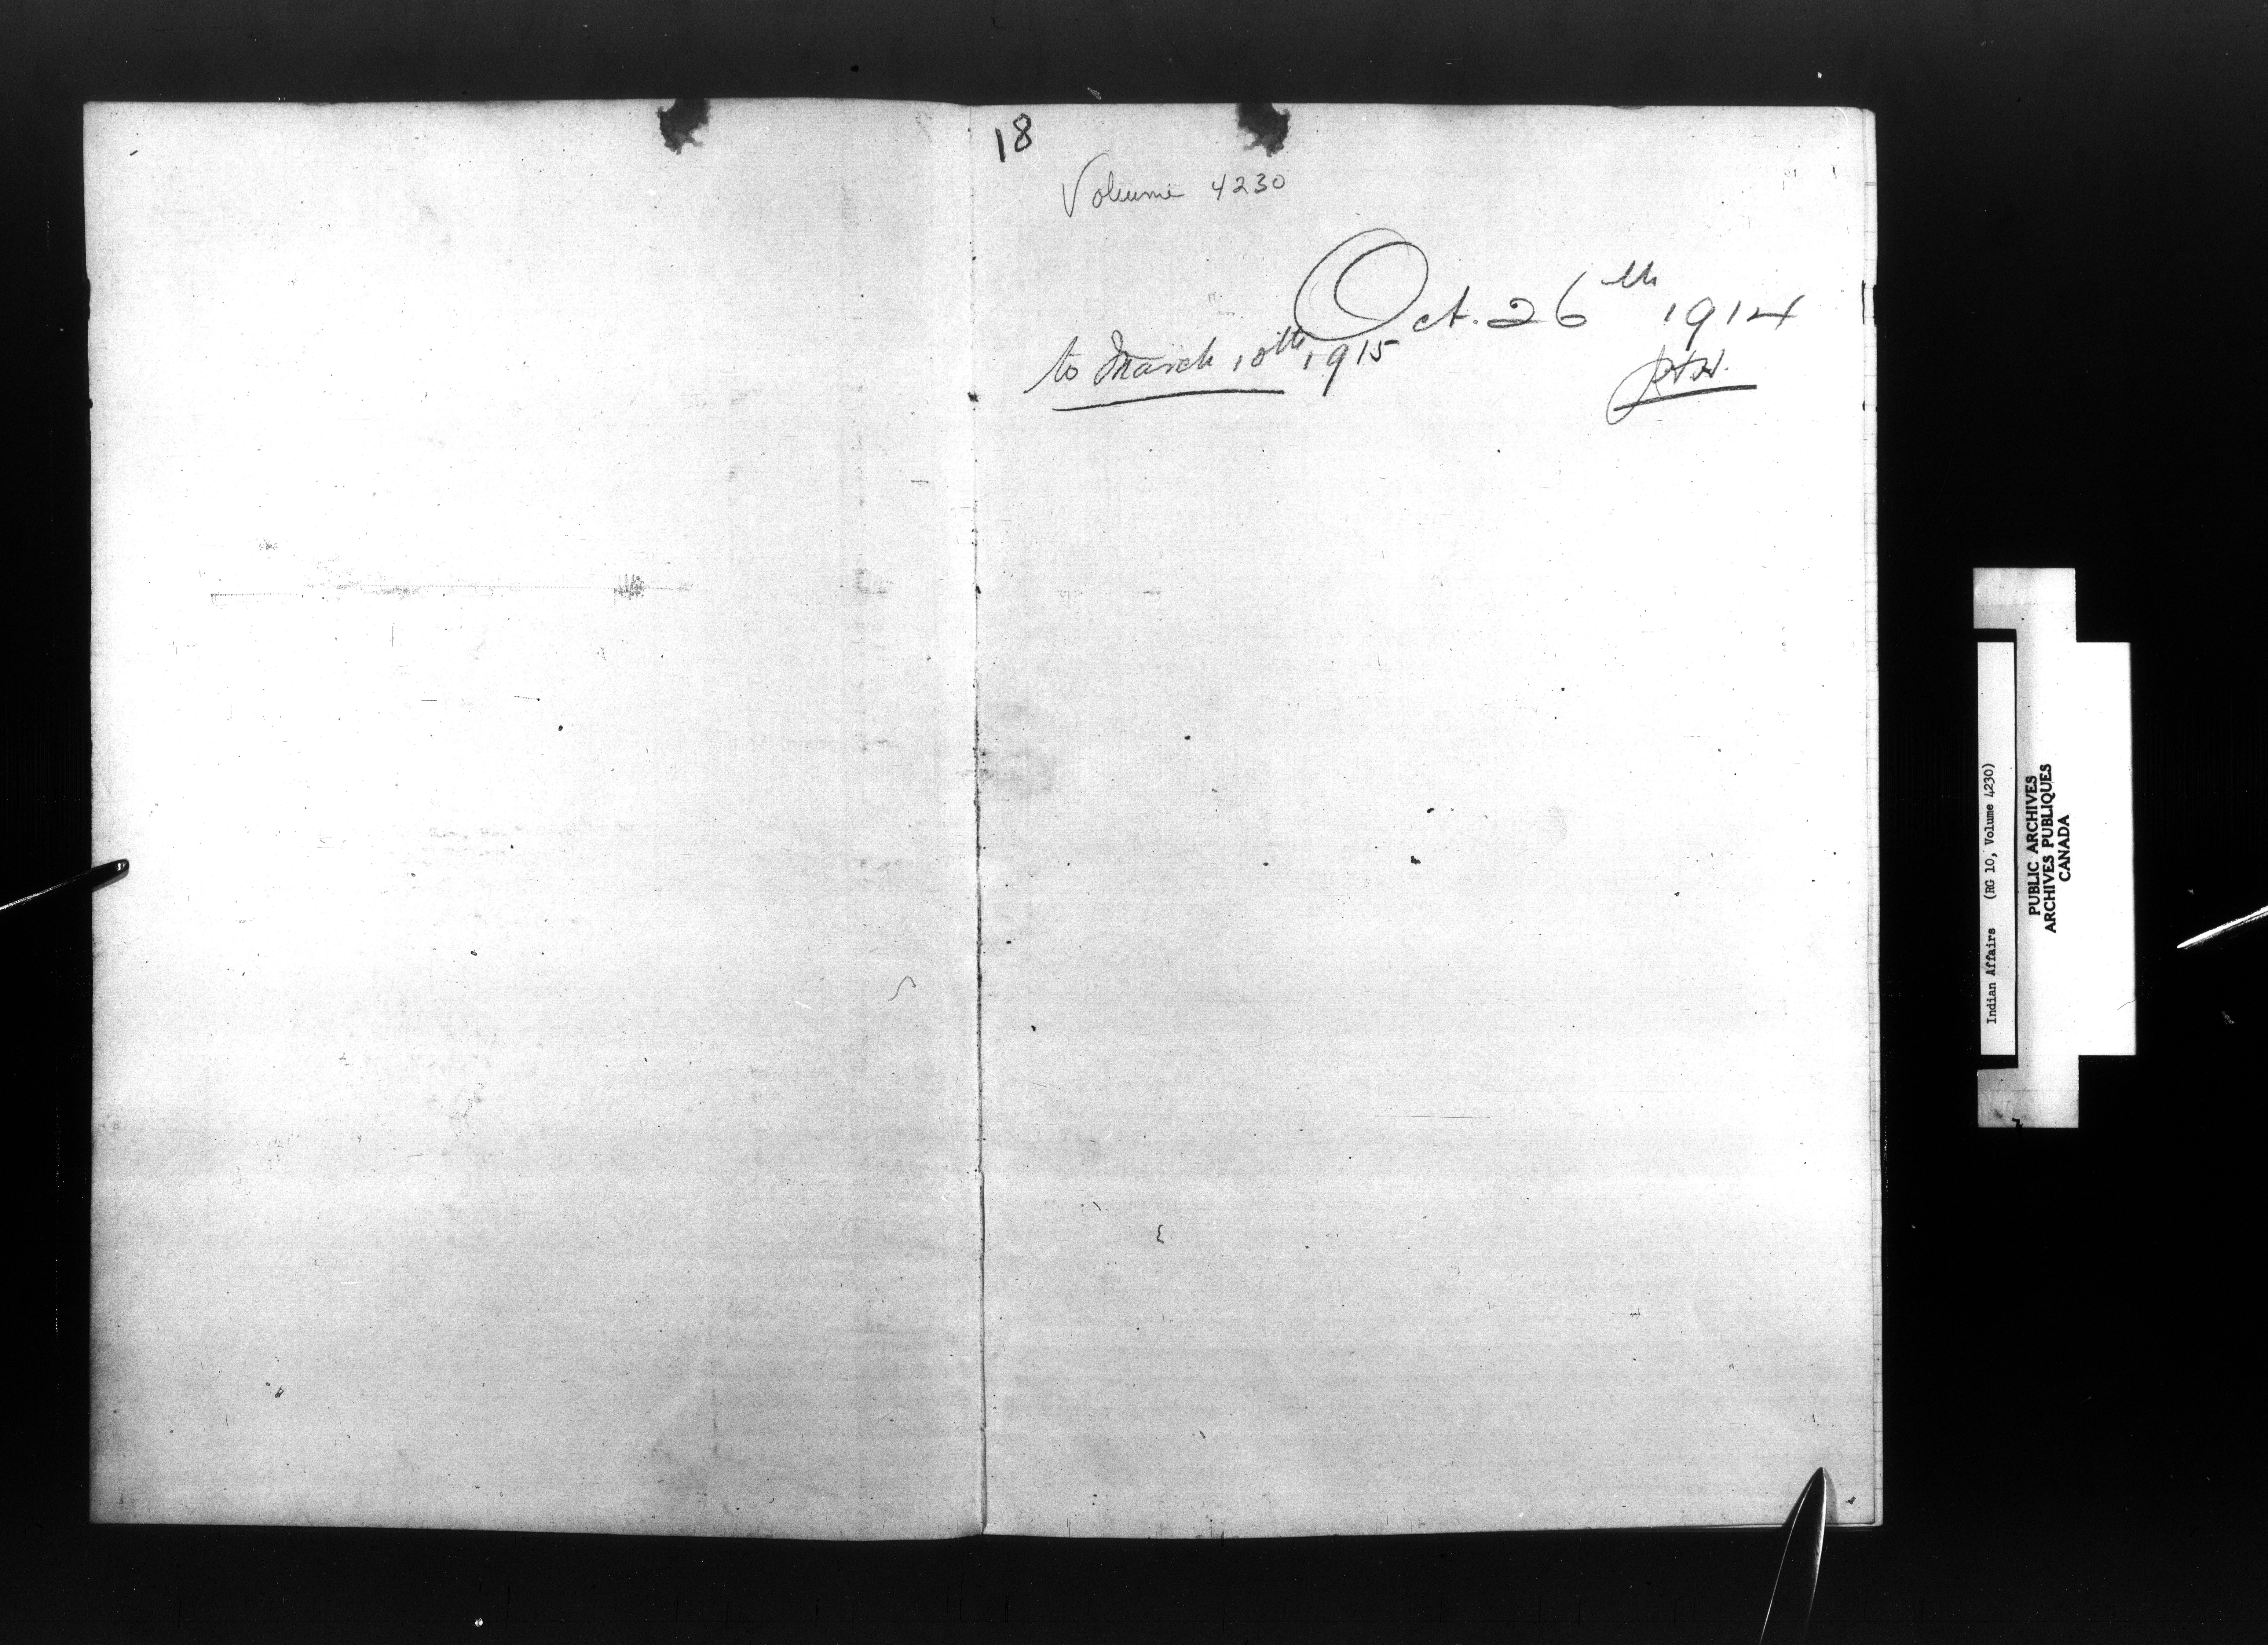 18
Volume 4230
Oct. 26th 1914
to March 10th 1915
Indian Affairs (RG 10, Volume 4230)
PUBLIC ARCHIVES
ARCHIVES PUBLIQUES
CANADA